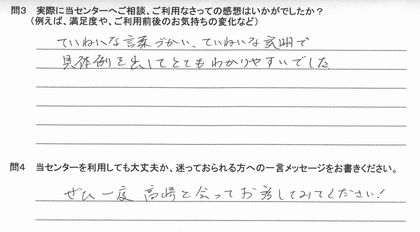 問3 実際に当センターへご相談、ご利用なさっての感想はいかがでしたか？
(例えば、満足度や、ご利用前後のお気持ちの変化など)
ていねいな言葉づかい、ていねいな説明で
具体例を出してとてもわかりやすいでした
問4 当センターを利用しても大丈夫か、迷っておられる方への一言メッセージをお書きください。
ぜひ一度 高崎と会ってお話してみてください！